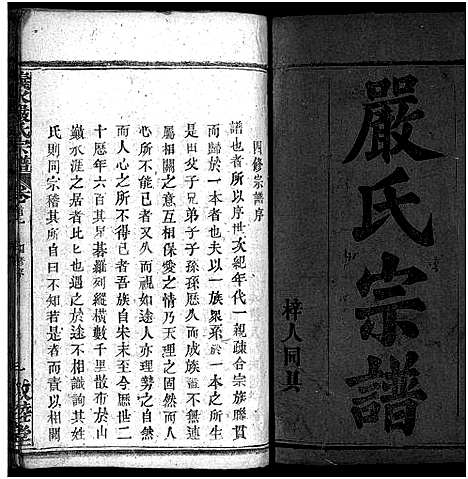 嚴氏宗譜
梓人同具
四修宗譜序
譜也者所以序世次紀年代一親疎合宗族聯貫
而歸於一本者也夫以一族衆系於一本之所生
是由父子兄弟子子孫孫歷久而成族溢不無連
屬相關之意互相保愛之情乃天理之固然而人
心所不能已者吾族如遠人亦理勢之自然
而人心之不得已者吾族自朱末至今曆世二
十歷年六百其星碁羅列縱橫數千里散布於山
巔水涯之居者比比也遇之於途不相識詢其姓
氏則同宗稽其所自曰不知若是者而責以相關